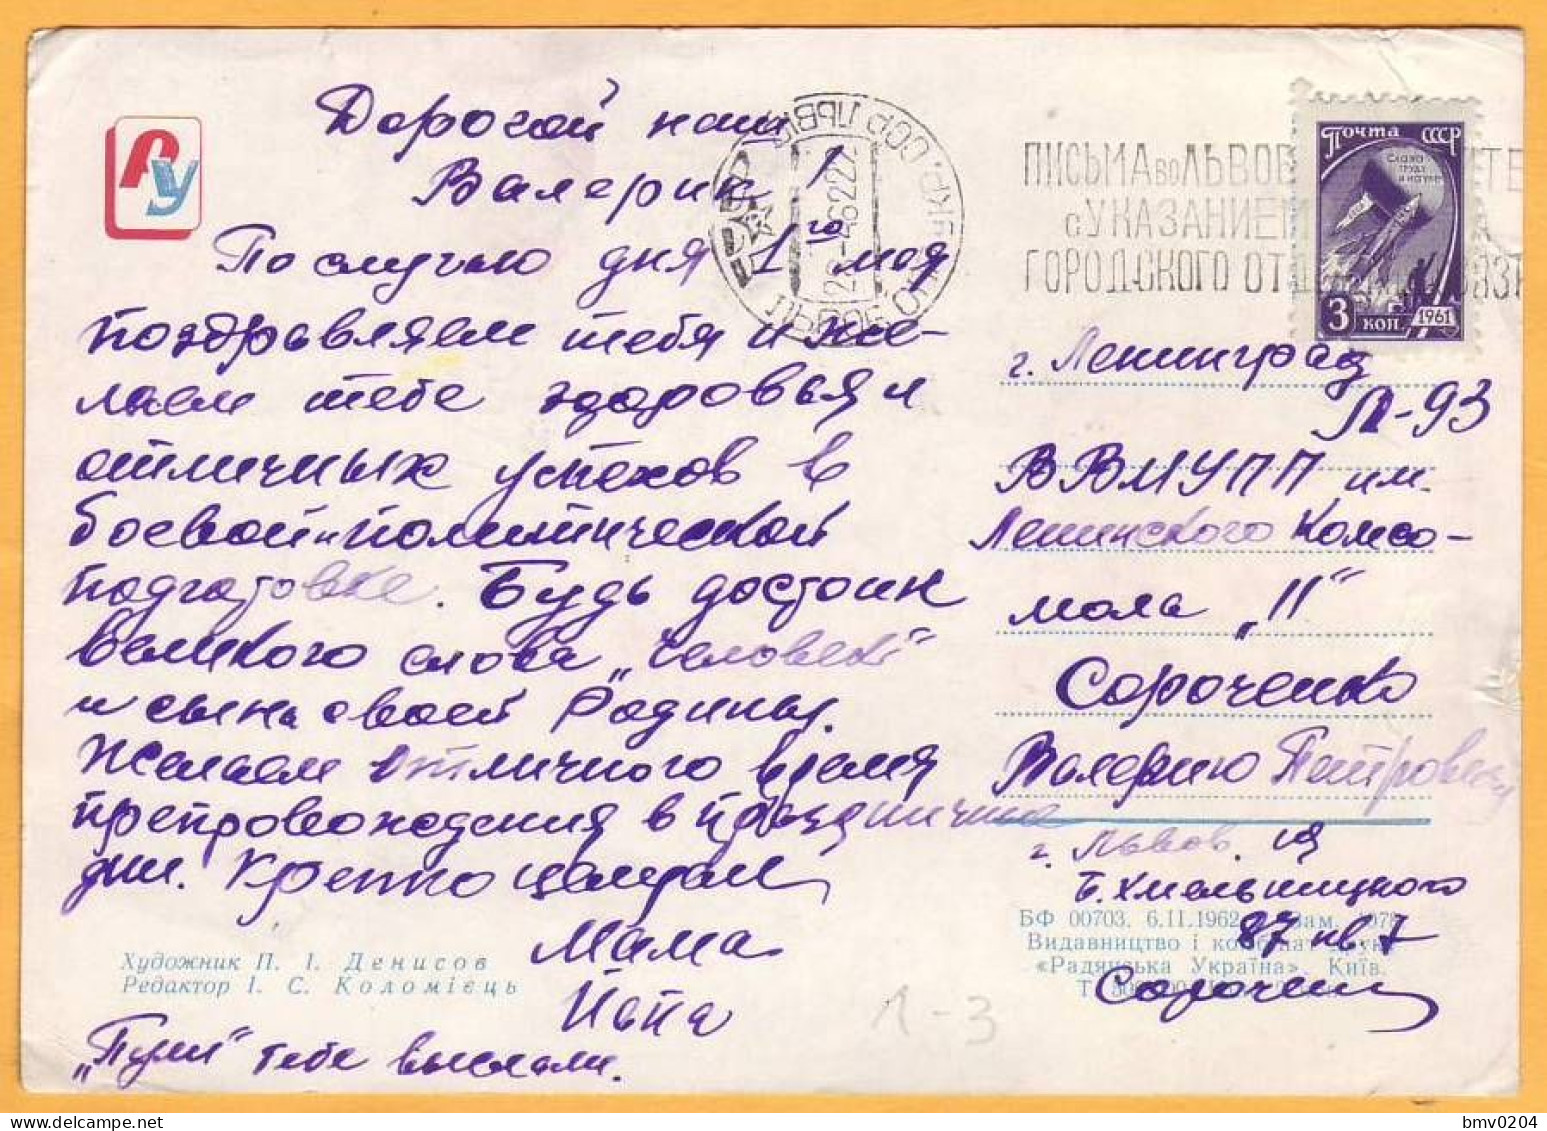 РУ
Дорогой наш
Валерик!
По случаю дня 1го мая
поздравляем тебя и же-
лаем тебе здоровья и
отличных успехов в
боевой и политической
подготовке. Будь достоин
великого слова „Человек"
и сына своей Родины.
Желаем отличного время
препровождения в праздничные
дни. Крепко целуем
Мама
Папа
„Туши" тебе выслали.
Художник П. І. Денисов
Редактор І. С. Коломієць
ПИСЬМА во ЛЬВОВ
с УКАЗАНИЕМ
ГОРОДСКОГО ОТ
Почта СССР
Слава
труду
и науке
3 КОП 1961
г. Ленинград
Л-93
ВВМУПП им.
Ленинского Комсо-
мола „11"
Сороченко
Валерию Петровичу
г. Львов. ул
Б. Хмельницкого
87 кв 7
Сорочен
БФ 00703. 6.II.1962 Зам. 1078
Видавництво і комбінат друку
«Радянська Україна», Київ.
Л-3
bmv0204